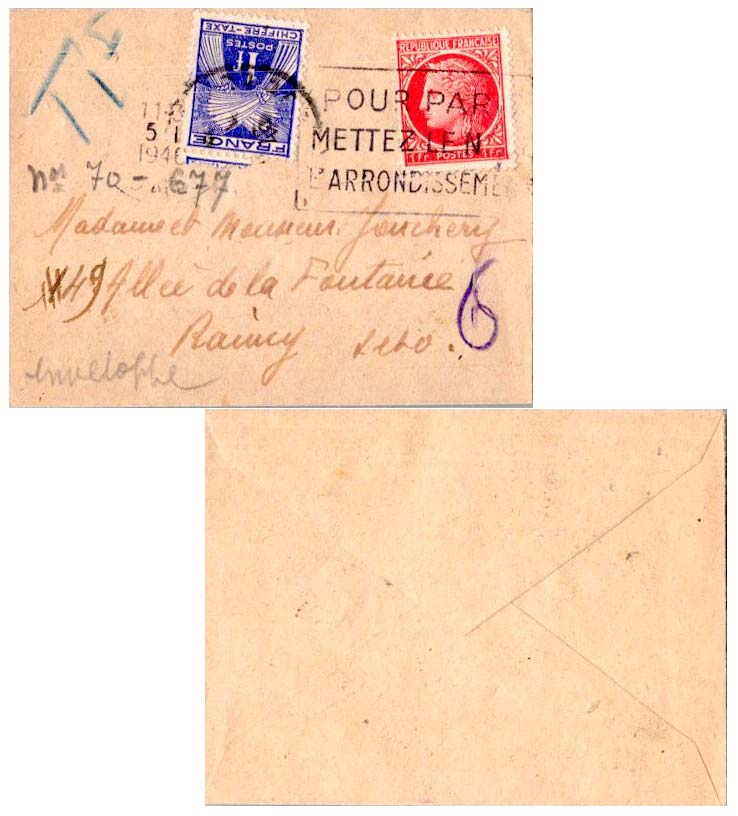 T 1f
CHIFFRE-TAXE
POSTES
1F
FRANCE
REPUBLIQUE FRANÇAISE
1Fr. POSTES 1Fr.
5 1
1946
POUR PAR
METTEZ LE N
L'ARRONDISSEME
nos 70 - 677
Madame et Monsieur
49 Allée de la Fontaine
Raincy
6
enveloppe